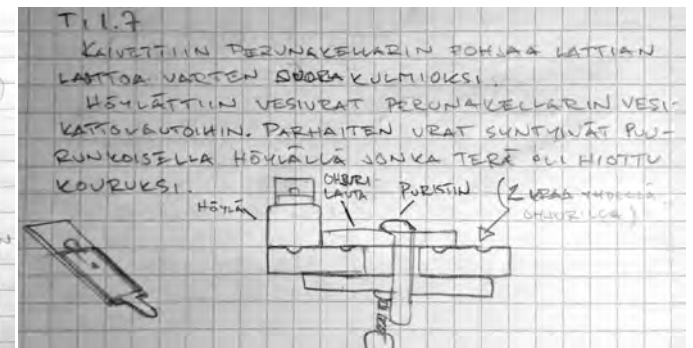 Ti 1.7
KAIVETTIIN PERUNAKELLARIN POHJAA LATTIAN
LAATTOA VARTEN SUORAKULMIOKSI.
HÖYLÄTTIIN VESIURAT PERUNAKELLARIN VESI-
KATTOLAUTOIHIN. PARHAITEN URAT SYNTYIVÄT PUU-
RUNKOISELLA HÖYLÄLLÄ JONKA TERÄ OLI HIOTTU
KOURUKSI.
HÖYLÄ
OHJURI-
LAUTA
PURISTIN
(2 URAA YHDELLÄ
OHJURILLA)